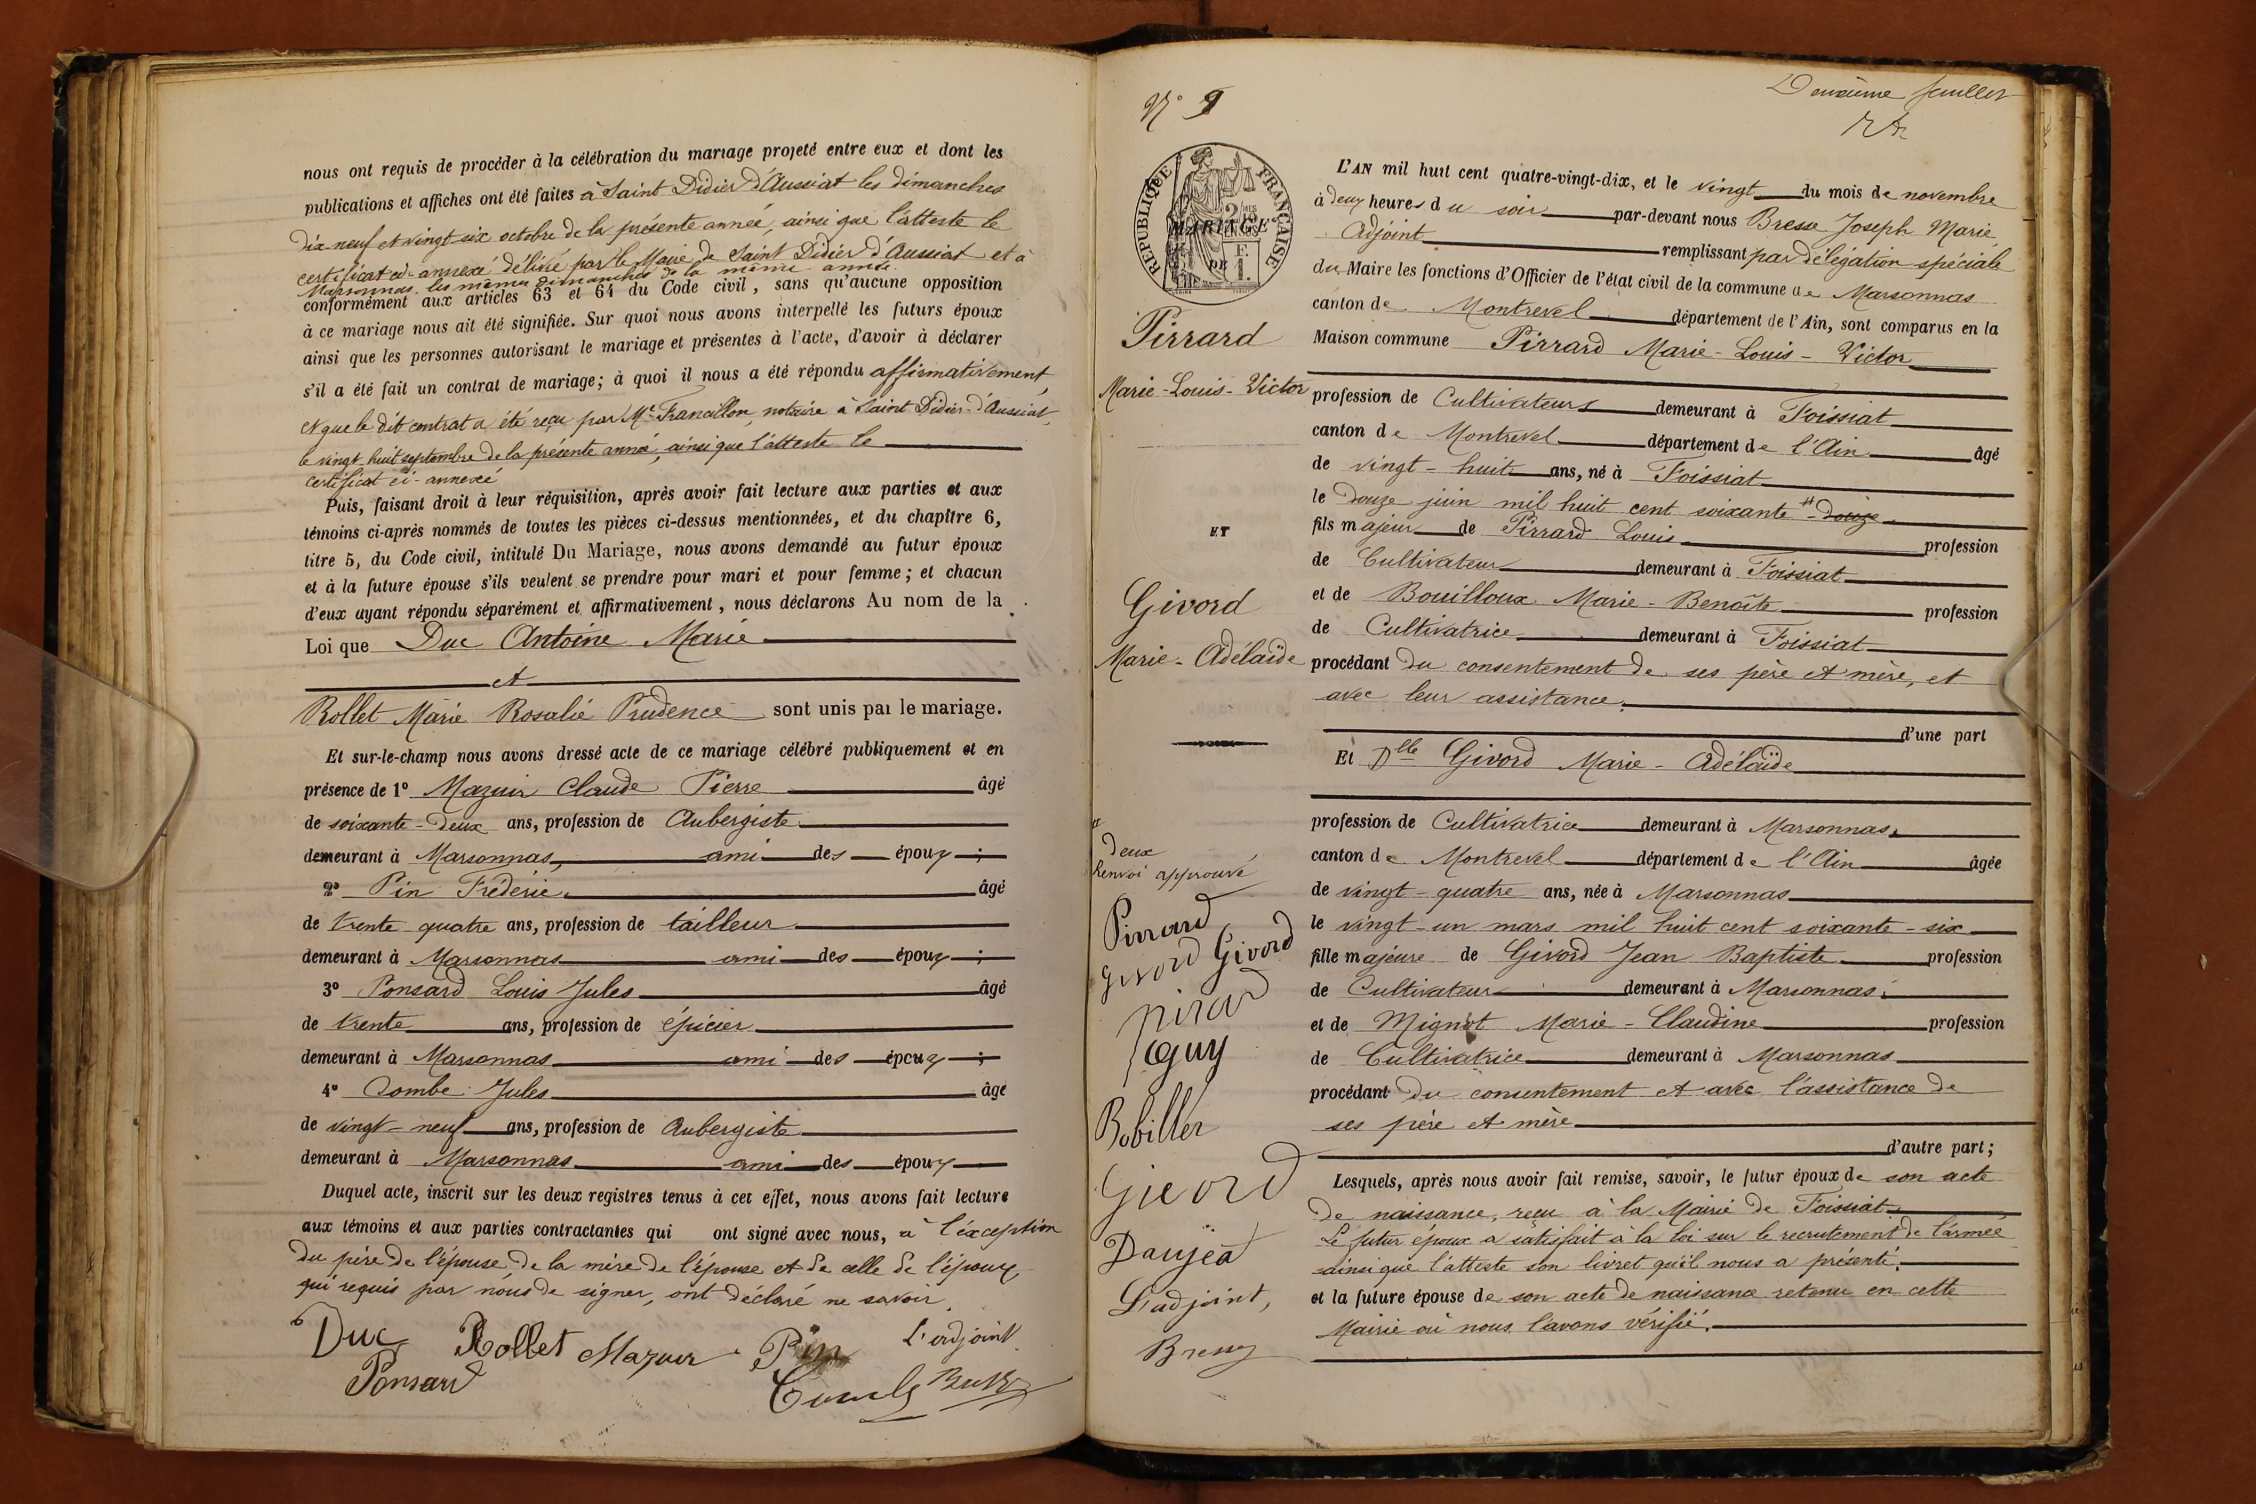 nous ont requis de procéder à la célébration du mariage projeté entre eux et dont les
publications et affiches ont été faites à Saint Didier d'Aussiat les dimanches
dix-neuf et vingt six octobre de la présente année, ainsi que l'atteste le
certificat ci-annexé délivré par le Maire de Saint Didier d'Aussiat et à
Marsonnas les mêmes dimanches de la même année.
conformément aux articles 63 et 64 du Code civil, sans qu'aucune opposition
à ce mariage nous ait été signifiée. Sur quoi nous avons interpellé les futurs époux
ainsi que les personnes autorisant le mariage et présentes à l'acte, d'avoir à déclarer
s'il a été fait un contrat de mariage; à quoi il nous a été répondu affirmativement,
et que le dit contrat a été reçu par Me Francillon, notaire à Saint Didier-d'Aussiat,
le vingt huit septembre de la présente année, ainsi que l'atteste le
certificat ci-annexé
Puis, faisant droit à leur réquisition, après avoir fait lecture aux parties et aux
témoins ci-après nommés de toutes les pièces ci-dessus mentionnées, et du chapitre 6,
titre 5, du Code civil, intitulé Du Mariage, nous avons demandé au futur époux
et à la future épouse s'ils veulent se prendre pour mari et pour femme; et chacun
d'eux ayant répondu séparément et affirmativement, nous déclarons Au nom de la
Loi que Duc Antoine Marie
et
Rollet Marie Rosalie Prudence sont unis par le mariage.
Et sur-le-champ nous avons dressé acte de ce mariage célébré publiquement et en
présence de 1º Mazuir Claude Pierre âgé
de soixante-deux ans, profession de Aubergiste
demeurant à Marsonnas, ami des époux;
2º Pin Fréderic âgé
de trente quatre ans, profession de tailleur
demeurant à Marsonnas ami des époux;
3º Ponsard Louis Jules âgé
de trente ans, profession de épicier
demeurant à Marsonnas ami des époux;
4º Combe Jules âgé
de vingt-neuf ans, profession de Aubergiste
demeurant à Marsonnas ami des époux
Duquel acte, inscrit sur les deux registres tenus à cet effet, nous avons fait lecture
aux témoins et aux parties contractantes qui ont signé avec nous, à l'éxception
du père de l'épouse de la mère de l'épouse et de celle de l'époux,
qui requis par nous de signer, ont déclaré ne savoir.
Duc Rollet Mazuir Pin L'adjoint
Ponsard
Nº 9
Deuxième feuillet
RÉPUBLIQUE FRANÇAISE
MARIAGE
Pirrard
Marie-Louis-Victor
ET
Givord
Marie-Adélaïde
deux
Renvoi approuvé
Pirrard
givord Givord
pirard
Guy
Bobiller
Givord
Daujat
L'adjoint,
L'AN mil huit cent quatre-vingt-dix, et le vingt du mois de novembre
à deux heures du soir par-devant nous Bresse Joseph Marie,
Adjoint remplissant par délégation spéciale
du Maire les fonctions d'Officier de l'état civil de la commune de Marsonnas
canton de Montrevel département de l'Ain, sont comparus en la
Maison commune Pirrard Marie-Louis-Victor
profession de Cultivateur demeurant à Foissiat
canton de Montrevel département de l'Ain âgé
de vingt-huit ans, né à Foissiat
le douze juin mil huit cent soixante-douze
fils majeur de Pirrard Louis profession
de Cultivateur demeurant à Foissiat
et de Bouilloux Marie-Benoîte profession
de Cultivatrice demeurant à Foissiat
procédant du consentement de ses père et mère, et
avec leur assistance.
d'une part
Et Dlle Givord Marie-Adélaïde
profession de Cultivatrice demeurant à Marsonnas,
canton de Montrevel département de l'Ain âgée
de vingt-quatre ans, née à Marsonnas
le vingt-un mars mil huit cent soixante-six
fille majeure de Givord Jean Baptiste profession
de Cultivateur demeurant à Marsonnas
et de Mignot Marie-Claudine profession
de Cultivatrice demeurant à Marsonnas
procédant du consentement et avec l'assistance de
ses père et mère
d'autre part;
Lesquels, après nous avoir fait remise, savoir, le futur époux de son acte
de naissance, reçu à la Mairie de Foissiat
Le futur époux a satisfait à la loi sur le recrutement de l'armée
ainsi que l'atteste son livret qu'il nous a présenté.
et la future épouse de son acte de naissance retenu en cette
Mairie où nous l'avons vérifié.